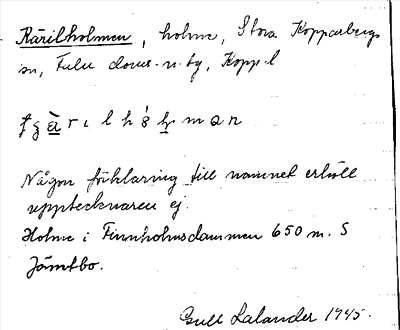 Kärilholmen, holme, Stora Kopparbergs
sn, Falu doms. o. tg, Kopp. l
Någon förklaring till namnet erhöll
upptecknaren ej.
Holme i Finnholmsdammen 650 m. S
Jämtbo.
Gull Lalander 1945.